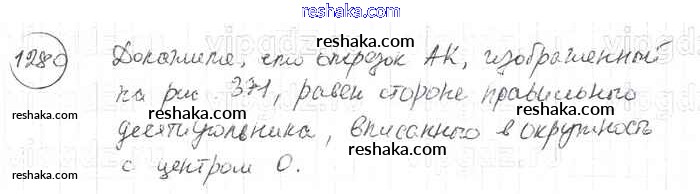 reshaka.com
1280 Докажите, что отрезок АК, изображенный
reshaka.com
на рис. 371, равен стороне правильного
reshaka.com
десятиугольника, вписанного в окружность
reshaka.com
с центром О.
reshaka.com